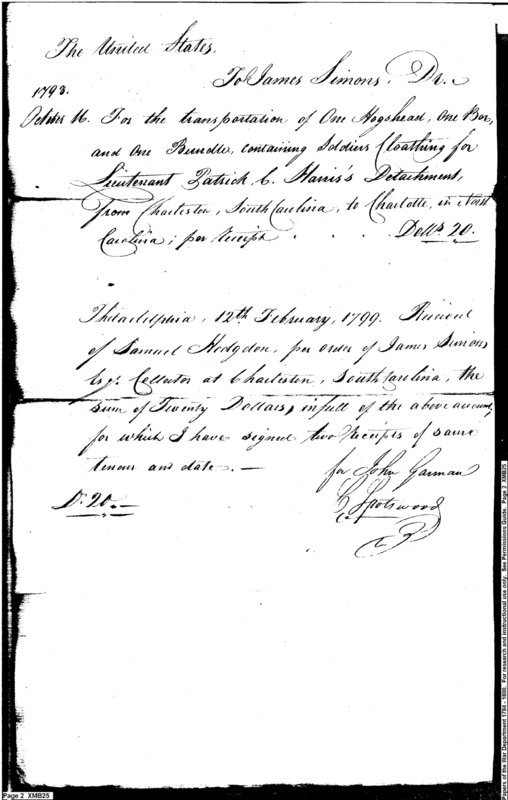 The United States,
To James Simons, Dr.
1798.
October 16. For the transportation of One Hogshead, One Box,
and One Bundle, containing Soldiers Cloathing for
Lieutenant Patrick C. Harris's Detachment,
from Charleston, South Carolina, to Charlotte, in North
Carolina; per receipt . . . Dolls. 20.
Philadelphia, 12th. February, 1799. Received
of Samuel Hodgdon, per order of James Simons
Esqr. Collector at Charleston, South Carolina, the
sum of Twenty Dollars, in full of the above account,
for which I have signed two Receipts of same
tenour and date. —
for John Garman
Spotswood
Ds. 20. —
Page 2 XMB25
Papers of the War Department 1784 - 1800. For research and instructional use only. See Permissions Guide. Page 2 XMB25